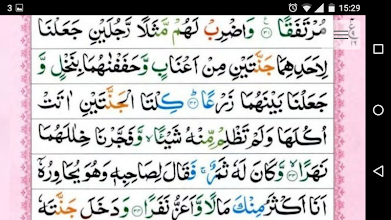 3 15:29
مُرْتَفَقًا ﴿۳۱﴾ وَاضْرِبْ لَهُمْ مَّثَلًا رَّجُلَيْنِ جَعَلْنَا
لِاَحَدِهِمَا جَنَّتَيْنِ مِنْ اَعْنَابٍ وَّحَفَفْنٰهُمَا بِنَخْلٍ وَّ
جَعَلْنَا بَيْنَهُمَا زَرْعًا ﴿۳۲﴾ كِلْتَا الْجَنَّتَيْنِ اٰتَتْ
اُكُلَهَا وَلَمْ تَظْلِمْ مِّنْهُ شَيْئًا وَّفَجَّرْنَا خِلٰلَهُمَا
نَهَرًا ﴿۳۳﴾ وَّكَانَ لَهٗ ثَمَرٌ فَقَالَ لِصَاحِبِهٖ وَهُوَ يُحَاوِرُهٗٓ
اَنَا اَكْثَرُ مِنْكَ مَالًا وَّاَعَزُّ نَفَرًا ﴿۳۴﴾ وَدَخَلَ جَنَّتَهٗ